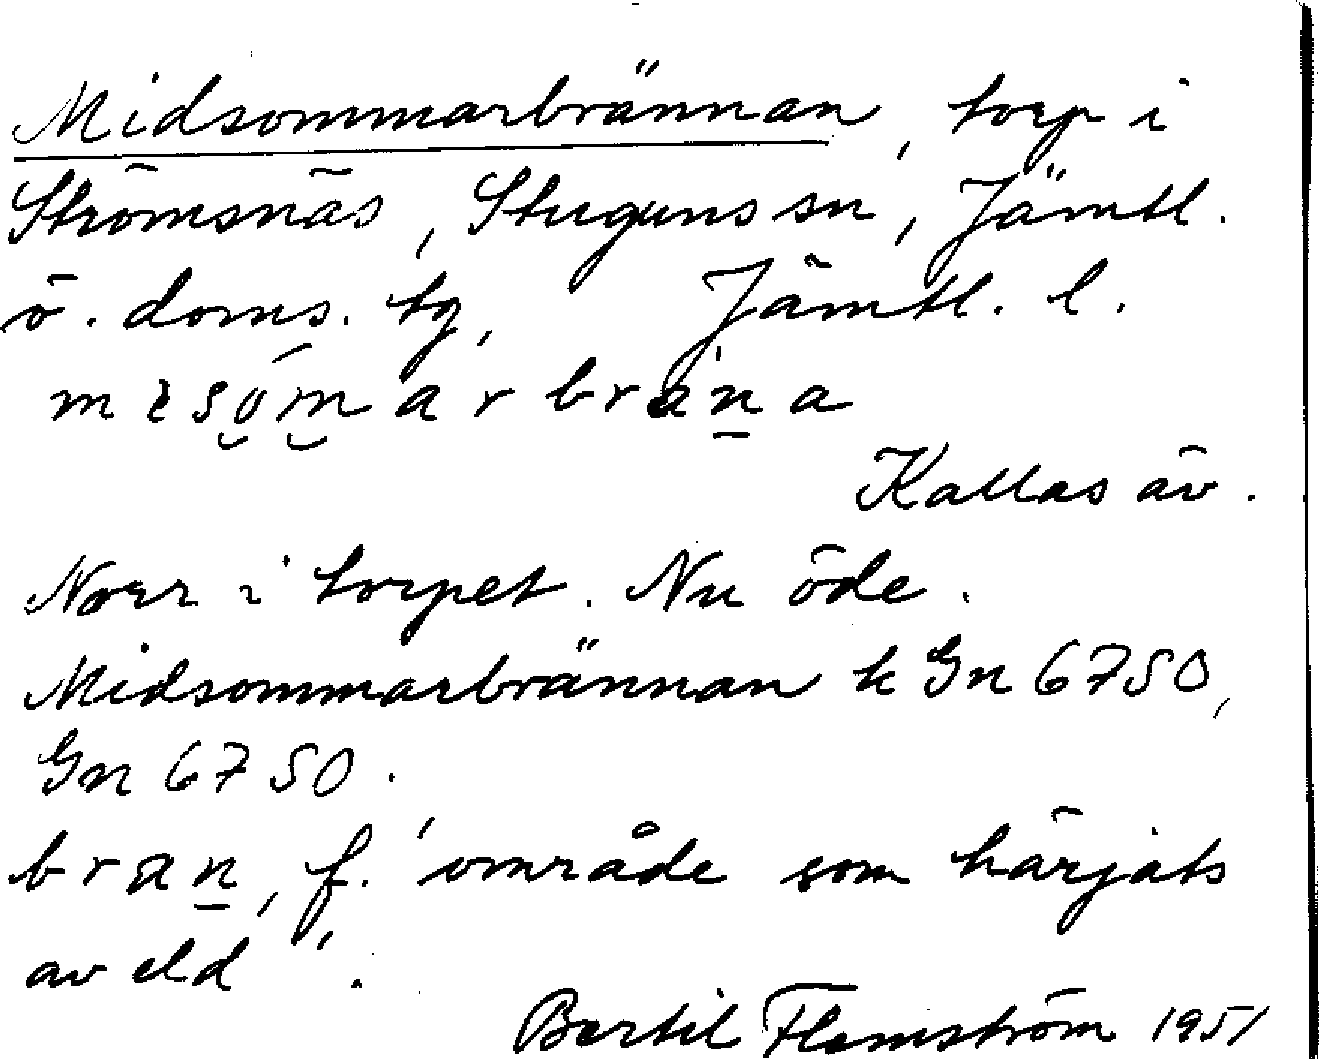 Midsommarbrännan, torp i
Strömsnäs, Stuguns sn, Jämtl.
ö. doms. tg, Jämtl. l.
Kallas äv.
Norr i torpet. Nu öde.
Midsommarbrännan k Gn 6750,
Gn 6750.
bran, f. 'område som härjats
av eld'.
Bertil Flemström 1951